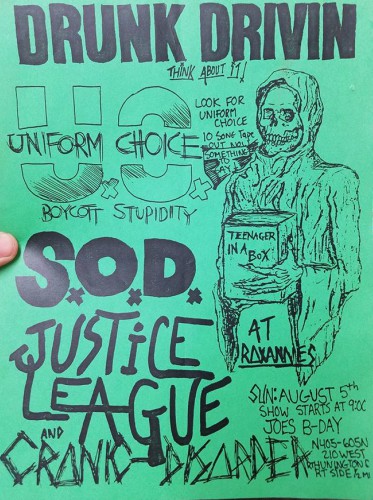 DRUNK DRIVIN
THINK ABOUT IT!
U.C.
UNIFORM CHOICE
BOYCOTT STUPIDITY
LOOK FOR
UNIFORM
CHOICE
10 SONG TAPE
OUT NOW
SOMETHING
TO
SAY
TEENAGER
IN A
BOX
S.O.D.
AT
ROXANNES
JUSTICE
LEAGUE
AND
CRONIC DISORDER
SUN: AUGUST 5th
SHOW STARTS AT 9:00
JOES B-DAY
N405-605N
210 WEST
HUNTINGTON
RT SIDE 1/2 MI